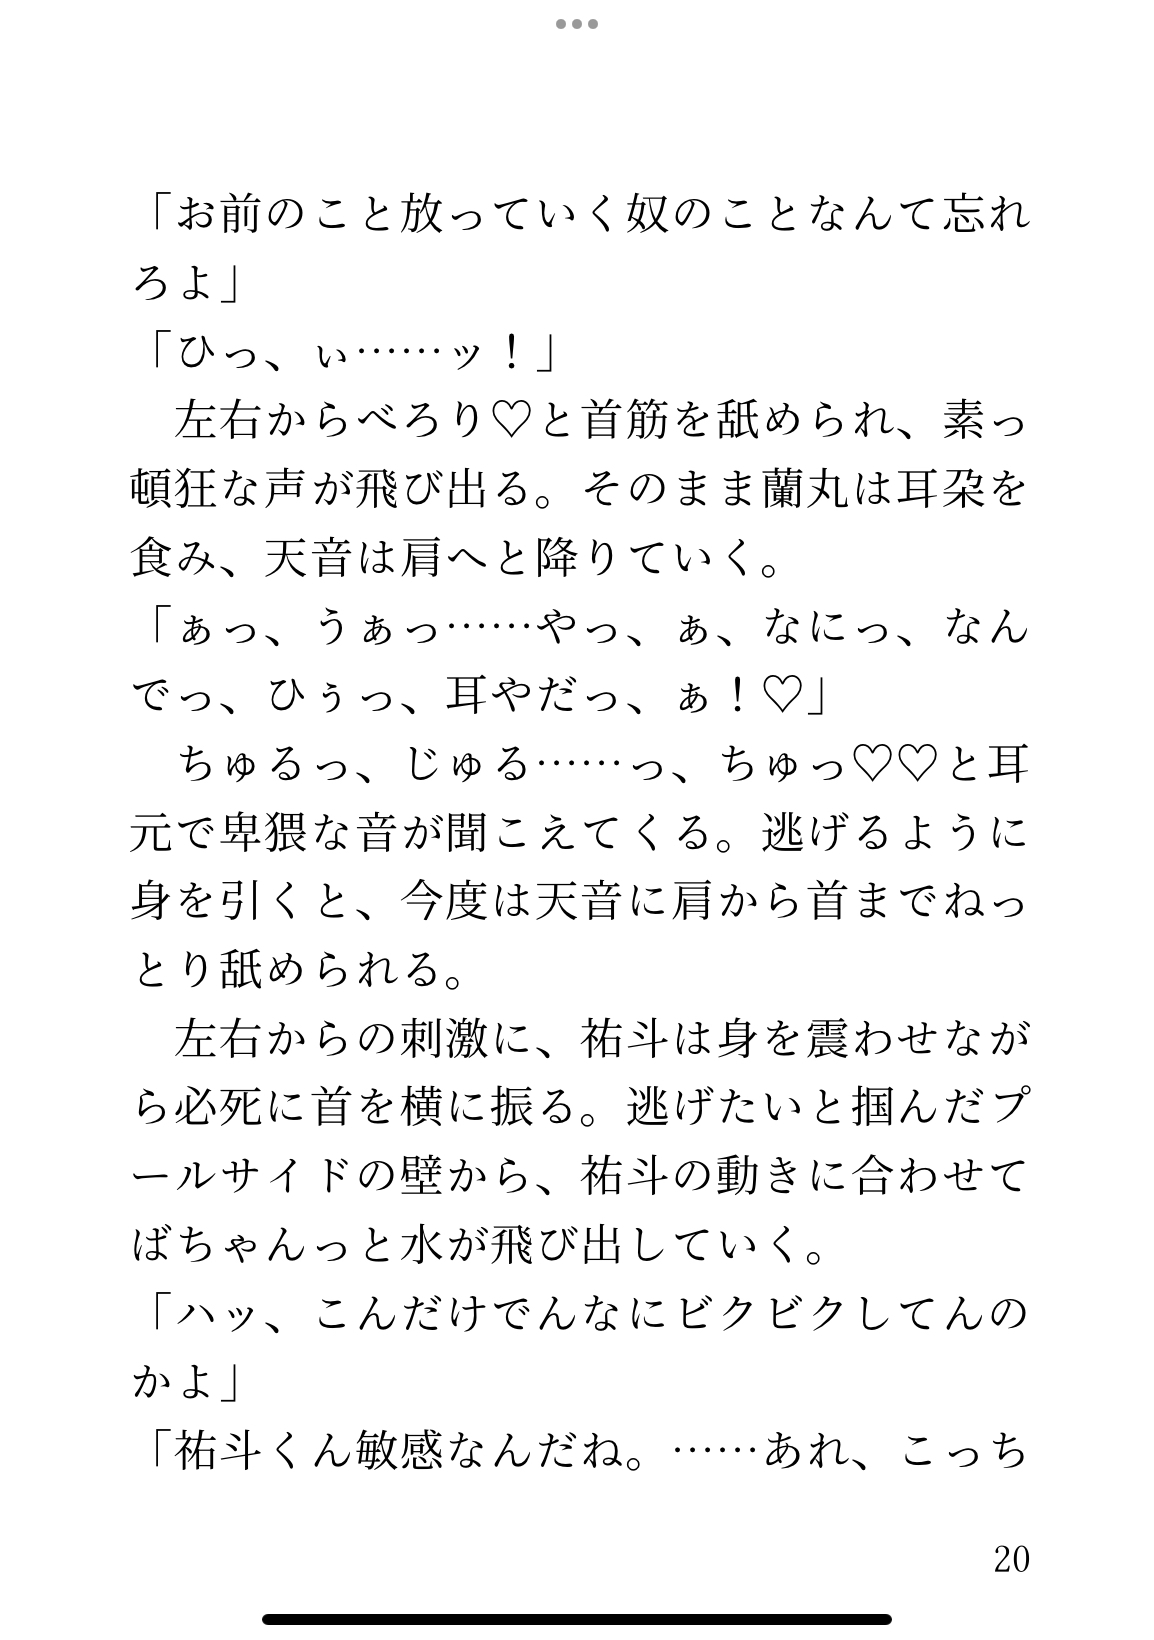 「お前のこと放っていく奴のことなんて忘れ
ろよ」
「ひっ、ぃ……ッ！」
　左右からべろり♡と首筋を舐められ、素っ
頓狂な声が飛び出る。そのまま蘭丸は耳朶を
食み、天音は肩へと降りていく。
「ぁっ、うぁっ……やっ、ぁ、なにっ、なん
でっ、ひぅっ、耳やだっ、ぁ！♡」
　ちゅるっ、じゅる……っ、ちゅっ♡♡と耳
元で卑猥な音が聞こえてくる。逃げるように
身を引くと、今度は天音に肩から首までねっ
とり舐められる。
　左右からの刺激に、祐斗は身を震わせなが
ら必死に首を横に振る。逃げたいと掴んだプ
ールサイドの壁から、祐斗の動きに合わせて
ばちゃんっと水が飛び出していく。
「ハッ、こんだけでんなにビクビクしてんの
かよ」
「祐斗くん敏感なんだね。……あれ、こっち
20